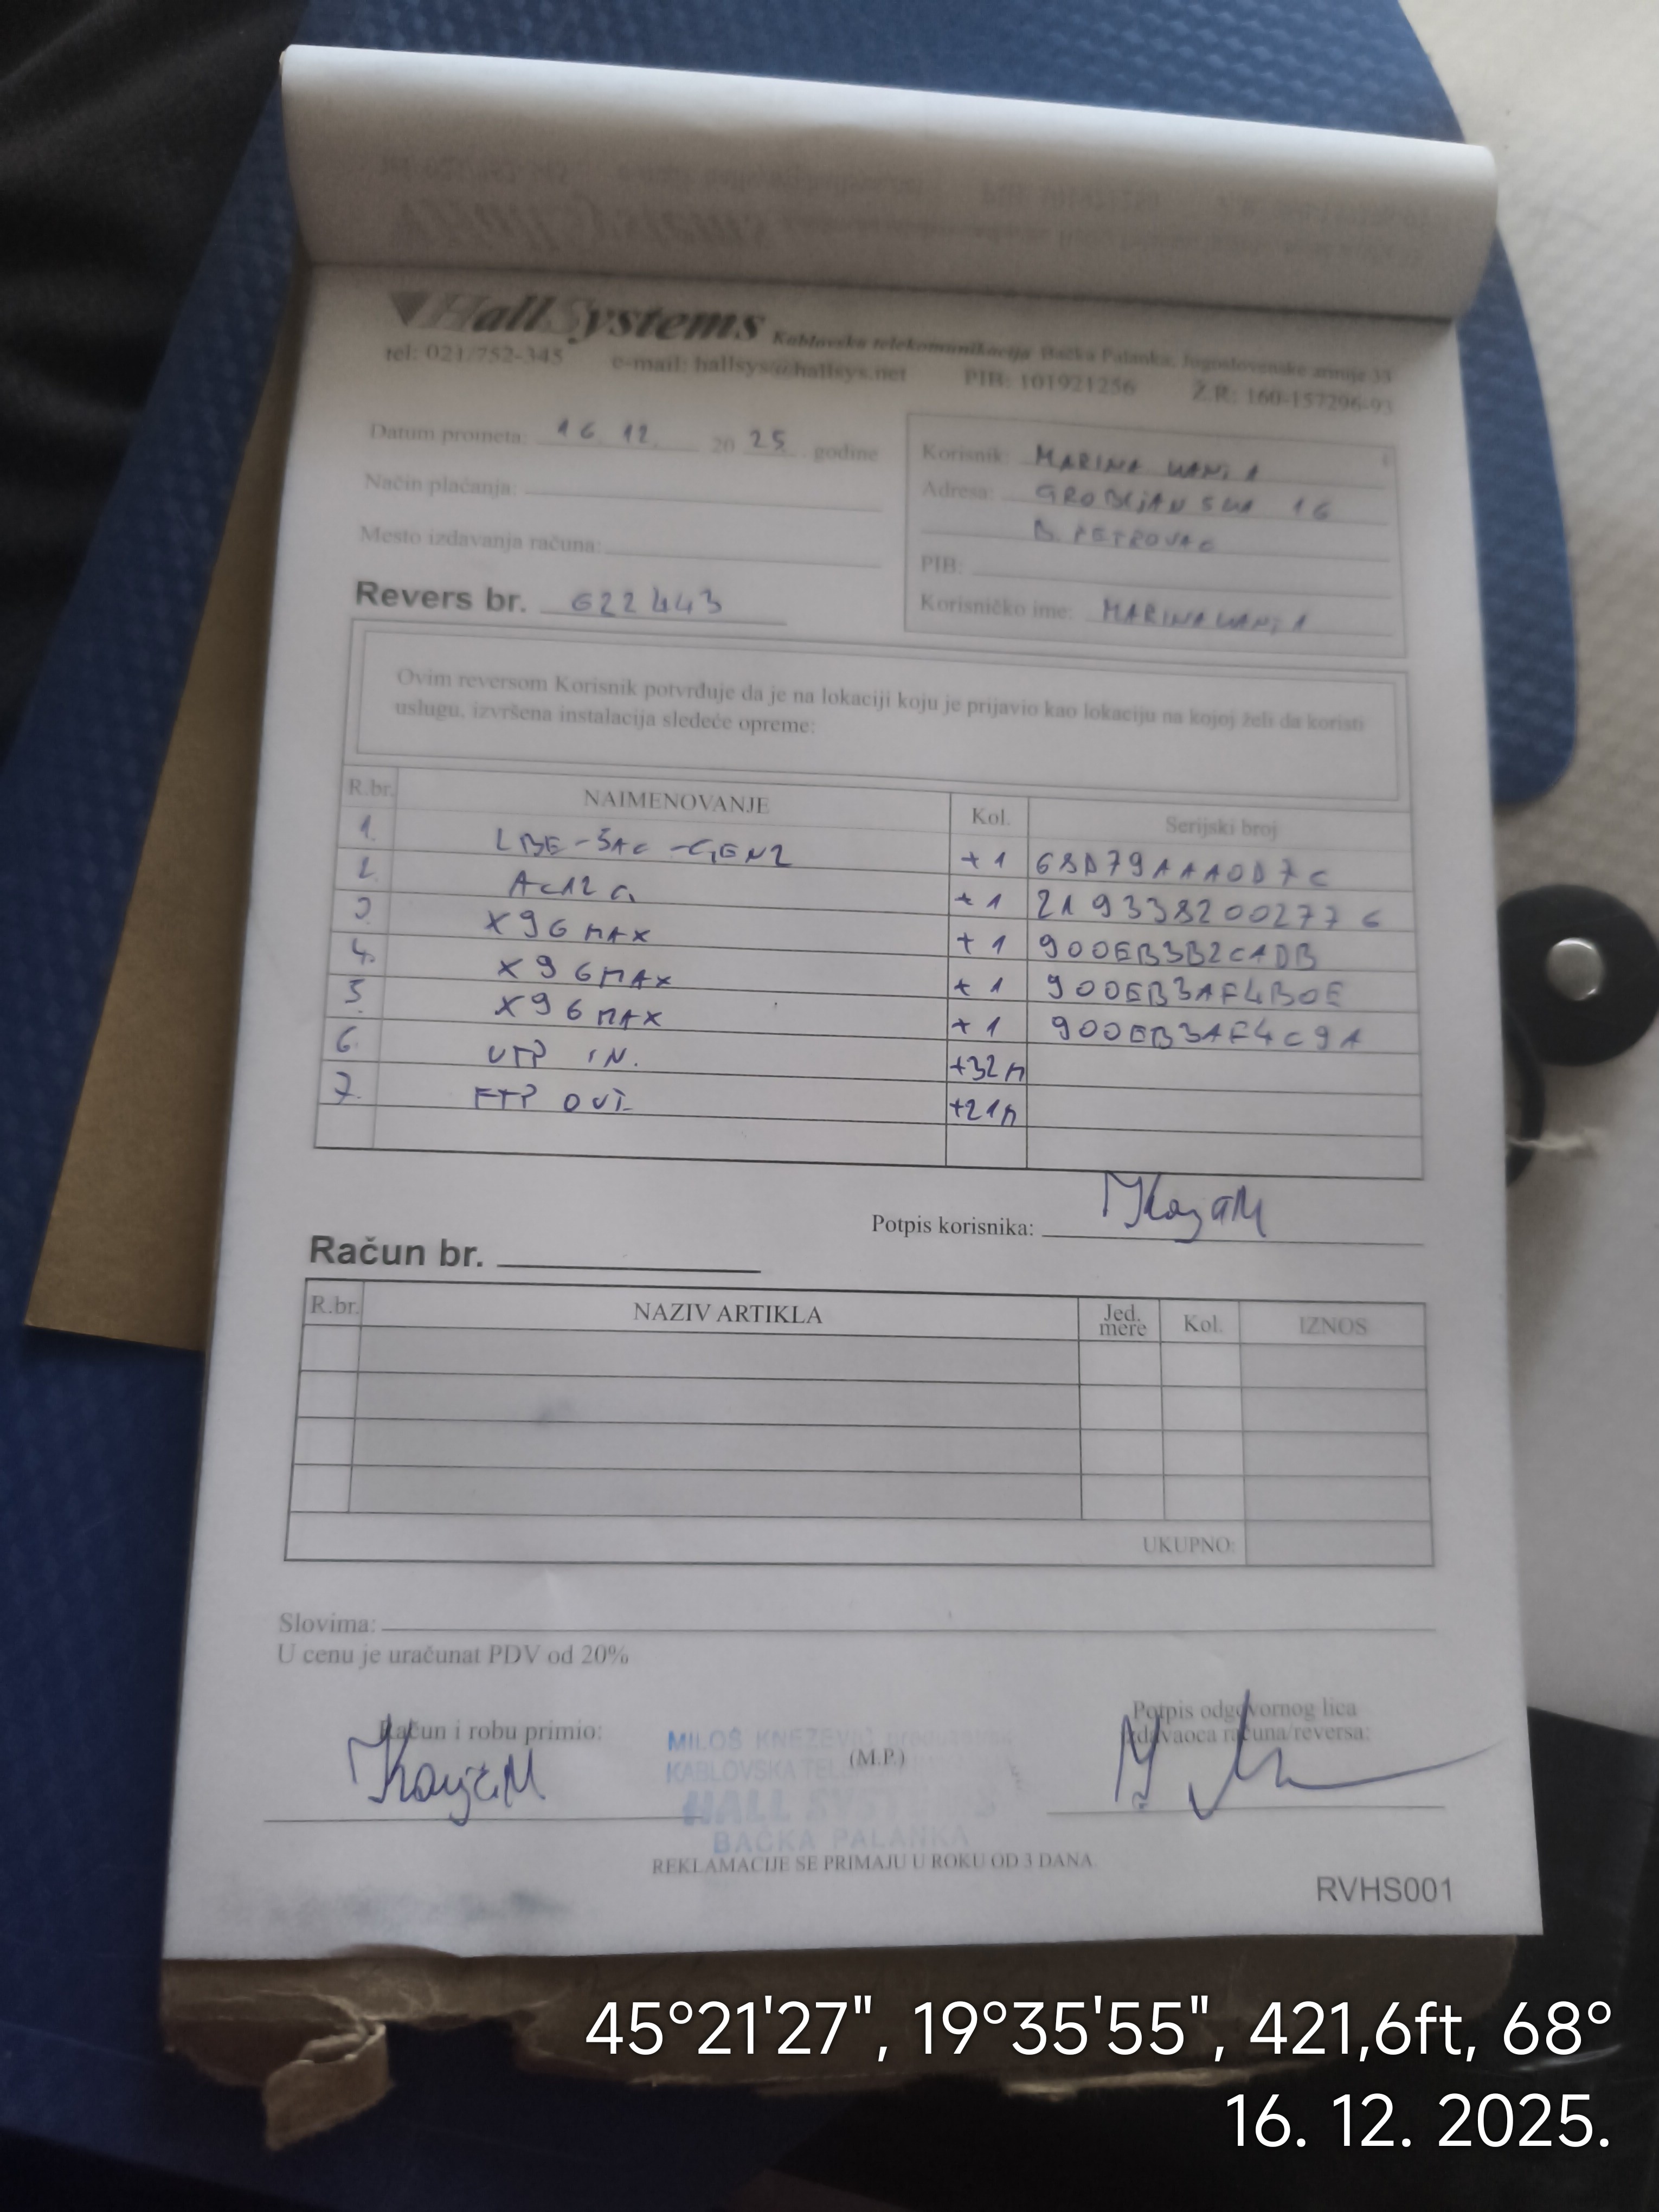 HallSystems Kablovska telekomunikacija Bačka Palanka, Jugoslovenske armije 33
tel: 021/752-345 e-mail: hallsys@hallsys.net PIB: 101921256 Ž.R: 160-157296-93
Datum prometa: 16 12 2025 godine
Način plaćanja:
Mesto izdavanja računa:
Revers br. 622443
Korisnik: MARINA
Adresa: 16
B. PETROVAC
PIB:
Korisničko ime:
Ovim reversom Korisnik potvrđuje da je na lokaciji koju je prijavio kao lokaciju na kojoj želi da koristi
uslugu, izvršena instalacija sledeće opreme:
R.br. NAIMENOVANJE Kol. Serijski broj
1. LBE-5AC-GEN2 +1 68D79AAA0D7C
2. AC12 G +1 2193382002776
3. X96MAX +1 900EB3B2CADB
4. X96MAX +1 900EB3AF4B0E
5. X96MAX +1 900EB3AF4C9A
6. UTP IN. +32m
7. FTP OUT +21m
Potpis korisnika:
Račun br.
R.br. NAZIV ARTIKLA Jed. mere Kol. IZNOS
UKUPNO:
Slovima:
U cenu je uračunat PDV od 20%
Račun i robu primio:
(M.P.)
Potpis odgovornog lica
izdavaoca računa/reversa:
MILOŠ KNEŽEVIĆ
KABLOVSKA
HALL SYSTEMS
BAČKA PALANKA
REKLAMACIJE SE PRIMAJU U ROKU OD 3 DANA.
RVHS001
45°21'27", 19°35'55", 421,6ft, 68°
16. 12. 2025.